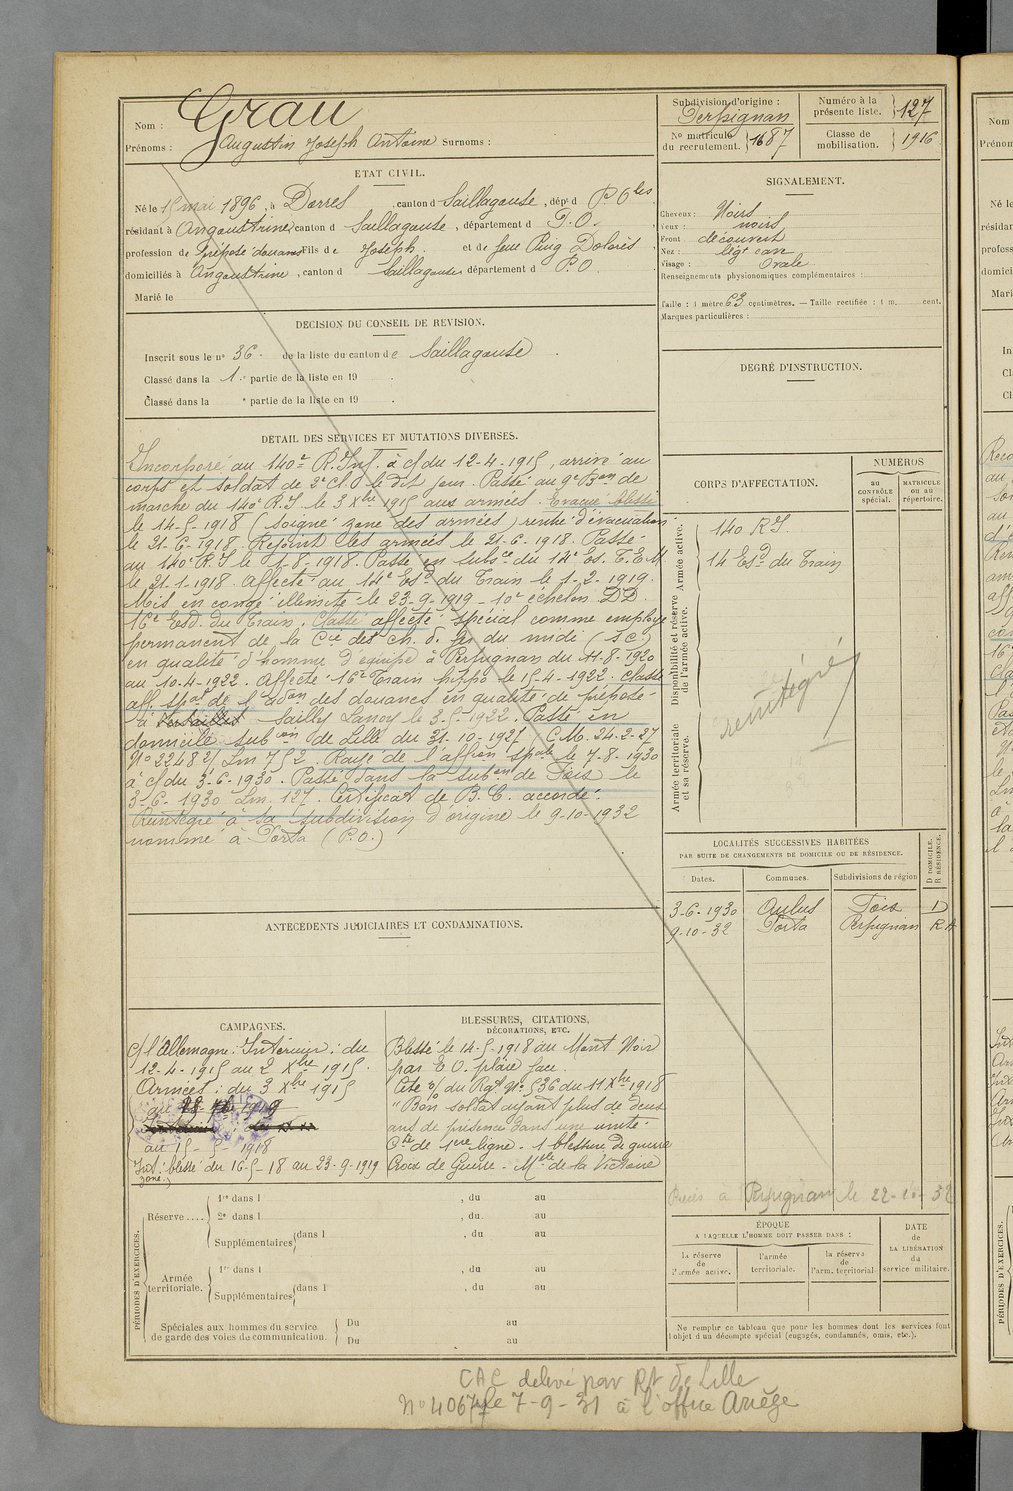 Nom : Grau
Prénoms : Augustin Joseph Antoine Surnoms :
ETAT CIVIL.
Né le 15 mai 1896, à Dorres, canton d Saillagouse, dép^t d P. O^les
résidant à Angoustrine, canton d Saillagouse, département d P.O.
profession de préposé douanes Fils de Joseph et de feue Puig Dolorès
domiciliés à Angoustrine, canton d Saillagouse département d P.O
Marié le
DECISION DU CONSEIL DE REVISION.
Inscrit sous le n° 36 de la liste du canton de Saillagouse.
Classé dans la 1re partie de la liste en 19 .
Classé dans la e partie de la liste en 19 .
DÉTAIL DES SERVICES ET MUTATIONS DIVERSES.
Incorporé au 140e R. Inf. à c/ du 12-4-1915, arrivé au
corps et soldat de 2e cl. le dit jour. Passé au 9e B^on de
marche du 140e R.I. le 3 X^bre 1915 aux armées. Evacué blessé
le 14-5-1918 (soigné zone des armées) rentré d'évacuation
le 21-6-1918. Rejoint les armées le 21-6-1918. Passé
au 140e R.I le 1-8-1918. Passé en subs^ce du 14e Es. T.E.M
le 21-1-1918. Affecté au 14e Es^d du Train le 1-2-1919.
Mis en congé illimité le 23-9-1919 - 10e échelon DD.
16e Esd. du Train. Classé affecté spécial comme employé
permanent de la Cie des ch. d. f. du midi (s.c.)
en qualité d'homme d'équipe à Perpignan du 11-8-1920
au 10-4-1922. Affecté 16e Train hippo le 15-4-1922. Classé
aff. sp^al de l'ad^on des douanes en qualité de préposé
à Sailly Lanoy le 3-5-1922. Passé en
domicile sub^on de Lille du 31-10-1927 C.M. 24-2-27
N° 22482/ Lm 752. Rayé de l'aff^on sp^ale le 7-8-1930
à c/ du 3-6-1930. Passé dans la sub^on de Foix le
3-6-1930 Lm. 127. Certificat de B.C. accordé.
Réintégré à sa subdivision d'origine le 9-10-1932
nommé à Porta (P.O.)
ANTÉCÉDENTS JUDICIAIRES ET CONDAMNATIONS.
CAMPAGNES.
c/ l'Allemagne : Intérieur : du
12-4-1915 au 2 X^bre 1915.
Armées : du 3 X^bre 1915
au 1919
au 15-5-1918
Int : blessé du 16-5-18 au 23-9-1919
zone
BLESSURES, CITATIONS,
DÉCORATIONS, ETC.
Blessé le 14-5-1918 au Mont Noir
par E.O. plaie face.
Cité o/ du Rgt N° 536 du 11 X^bre 1918
"Bon soldat ayant plus de deux
ans de présence dans une unité
C^te de 1ère ligne - 1 blessure de guerre
Croix de Guerre - M^lle de la Victoire
PÉRIODES D'EXERCICES.
Réserve....
1re dans l , du au
2e dans l , du au
Supplémentaires dans l , du au
Armée territoriale.
1re dans l , du au
Supplémentaires dans l , du au
Spéciales aux hommes du service
de garde des voies de communication.
Du au
Du au
Subdivision d'origine :
Perpignan
N° matricule
du recrutement. 1687
Numéro à la
présente liste. 127
Classe de
mobilisation. 1916
SIGNALEMENT.
Cheveux : Noirs
Yeux : noirs
Front : découvert
Nez : légt cave
Visage : Ovale
Renseignements physionomiques complémentaires :
Taille : 1 mètre 63 centimètres. — Taille rectifiée : 1 m. cent.
Marques particulières :
DEGRÉ D'INSTRUCTION.
CORPS D'AFFECTATION.
NUMÉROS
au
CONTRÔLE
spécial.
MATRICULE
ou au
répertoire.
Armée active.
140 R.I.
14 Es^d du Train
Disponibilité et réserve
de l'armée active.
réintégré
Armée territoriale
et sa réserve.
LOCALITÉS SUCCESSIVES HABITÉES
PAR SUITE DE CHANGEMENTS DE DOMICILE OU DE RÉSIDENCE.
Dates. Communes. Subdivisions de région
D DOMICILE.
R RÉSIDENCE.
3-6-1930 Aulus Foix D
9-10-32 Porta Perpignan R
à Perpignan le 22-10-32
ÉPOQUE
A LAQUELLE L'HOMME DOIT PASSER DANS :
la réserve
de
l'armée active.
l'armée
territoriale.
la réserve
de
l'arm. territorial
DATE
de
LA LIBÉRATION
du
service militaire.
Ne remplir ce tableau que pour les hommes dont les services font
l'objet d'un décompte spécial (engagés, condamnés, omis, etc.).
CAC délivré par Rt de Lille
N° 40677 le 7-9-31 à l'office Ariège